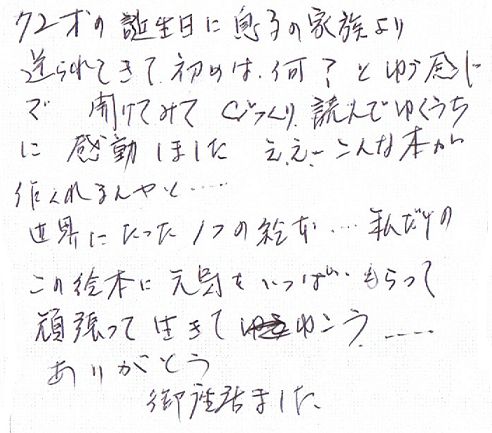 72才の誕生日に息子の家族より
送られてきて初めは、何？とゆう感じ
で 開けてみてびっくり、読んでゆくうち
に 感動しました ええーこんな本が
作くれるんやと‥‥
世界にたった1つの絵本‥‥私だけの
この絵本に元気をいっぱいもらって
頑張って生きてゆこう‥‥
ありがとう
御座居ました、